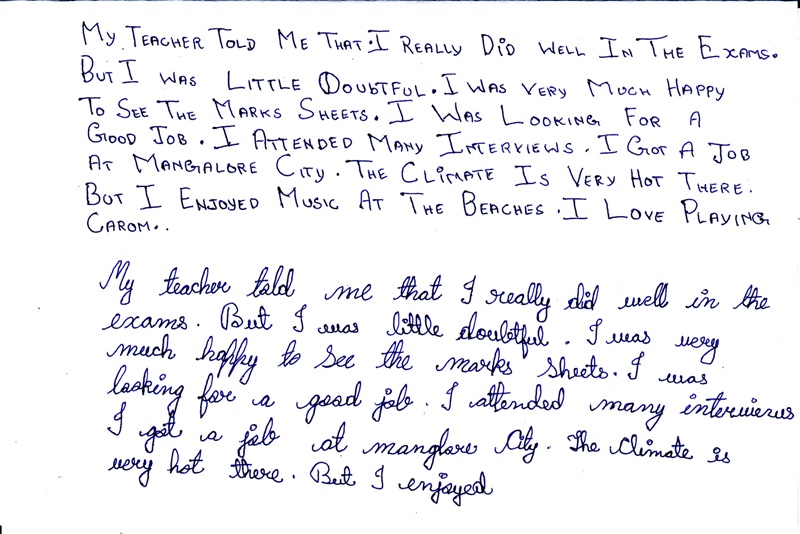 My Teacher Told Me That. I Really Did Well In The Exams.
But I was Little Doubtful. I was very Much Happy
To See The Marks Sheets. I Was Looking For A
Good Job. I Attended Many Interviews. I Got A Job
At Mangalore City. The Climate Is Very Hot There.
But I Enjoyed Music At The Beaches. I Love Playing
Carom..
My teacher told me that I really did well in the
exams. But I was little doubtful. I was very
much happy to see the marks sheets. I was
looking for a good job. I attended many interviews
I got a job at manglore City. The Climate is
very hot there. But I enjoyed